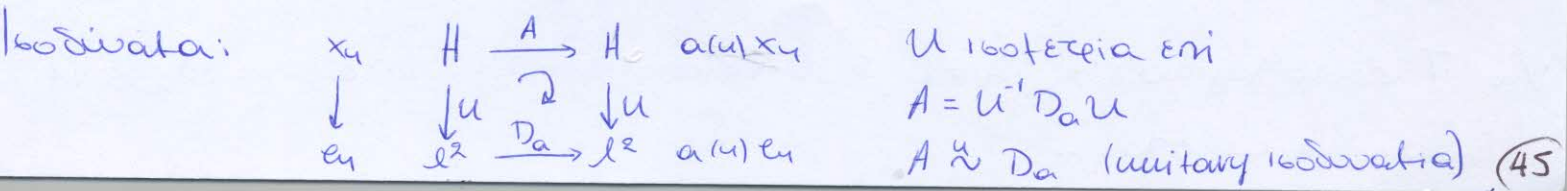 Ισοδύναμα: xₙ H —A→ H a(n)xₙ U ισομετρία επί
↓ ↓U ↓U A = U⁻¹DₐU
eₙ ℓ² —Dₐ→ ℓ² a(n)eₙ A ᵘ≈ Dₐ (unitary ισοδυναμία) 45